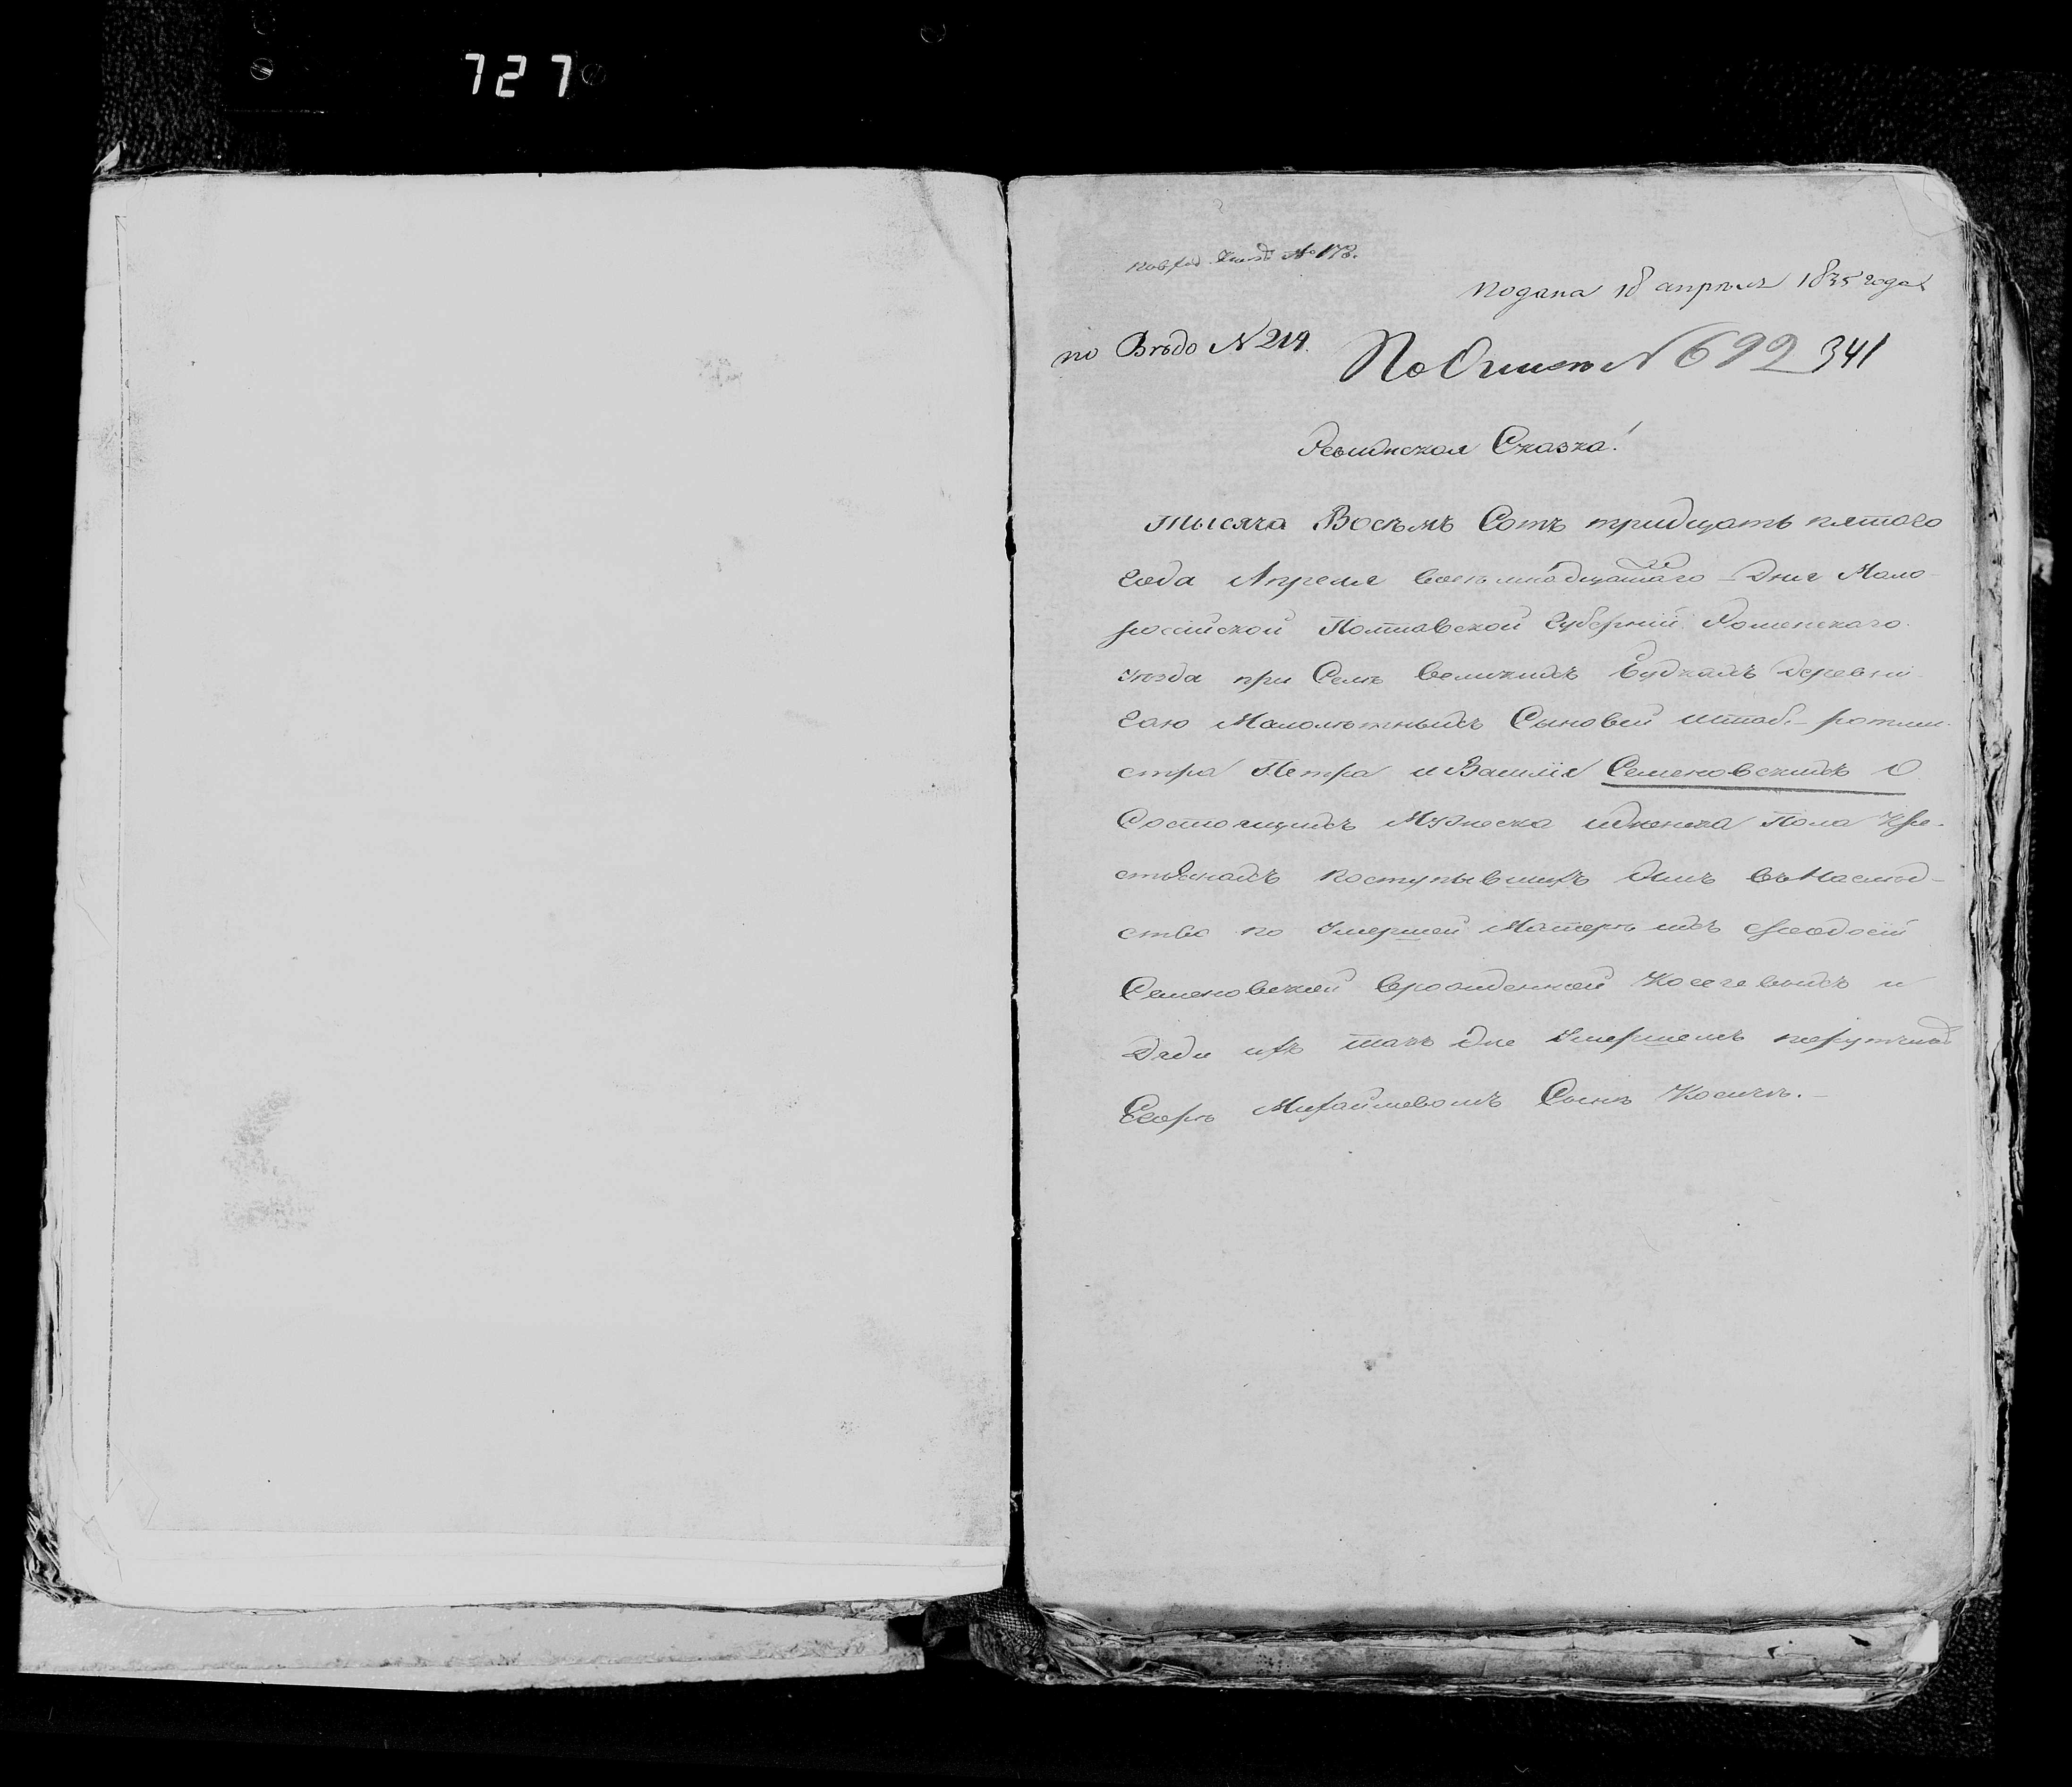 727
№ 178.
подана 18 апреля 1835 года
по Вѣдо N 219.
По Описи N 692 341
Ревижская Сказка!
тысяча Восѣмъ Сотъ тридцать пятого
Года Апреля восемнадцатаго Дня Мало-
россійской Полтавской Губерніи Роменскаго
уезда при Селѣ Великихъ Будкахъ Деревни
Гаю Малолѣтныхъ Сыновей штаб-ротми-
стра Петра и Василія Семеновскихъ О
Состоящихъ Мужеска иженска Пола Кре-
стьянахъ поступывшихъ имъ въ Наслед-
ство по Умершей Матери ихъ Феодосіи
Семеновской врожденной Косачевыхъ и
Дяди ихъ такъ же Умершемъ поручикѣ
Егорѣ Михайловомъ Сынѣ Косичѣ.